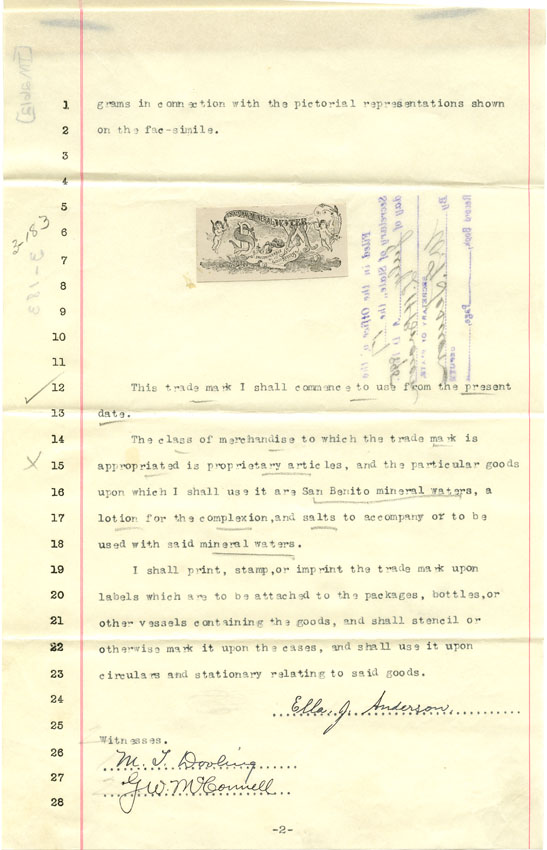 1 grams in connection with the pictorial representations shown
2 on the fac-simile.
3
4
5
6
7
8
9
10
11
2,183
3-183
WATER
Filed in the Office of the
Secretary of State, the 17
day of A.D. 1895
SECRETARY OF STATE.
By
DEPUTY
Record Book, Page,
12 This trade mark I shall commence to use from the present
13 date.
14 The class of merchandise to which the trade mark is
X
15 appropriated is proprietary articles, and the particular goods
16 upon which I shall use it are San Benito mineral waters, a
17 lotion for the complexion,and salts to accompany or to be
18 used with said mineral waters.
19 I shall print, stamp,or imprint the trade mark upon
20 labels which are to be attached to the packages, bottles,or
21 other vessels containing the goods, and shall stencil or
22 otherwise mark it upon the cases, and shall use it upon
23 circulars and stationary relating to said goods.
24 Ella J. Anderson
25 Witnesses.
26 M. T. Dooling
27 G.W. McConnell
28
-2-